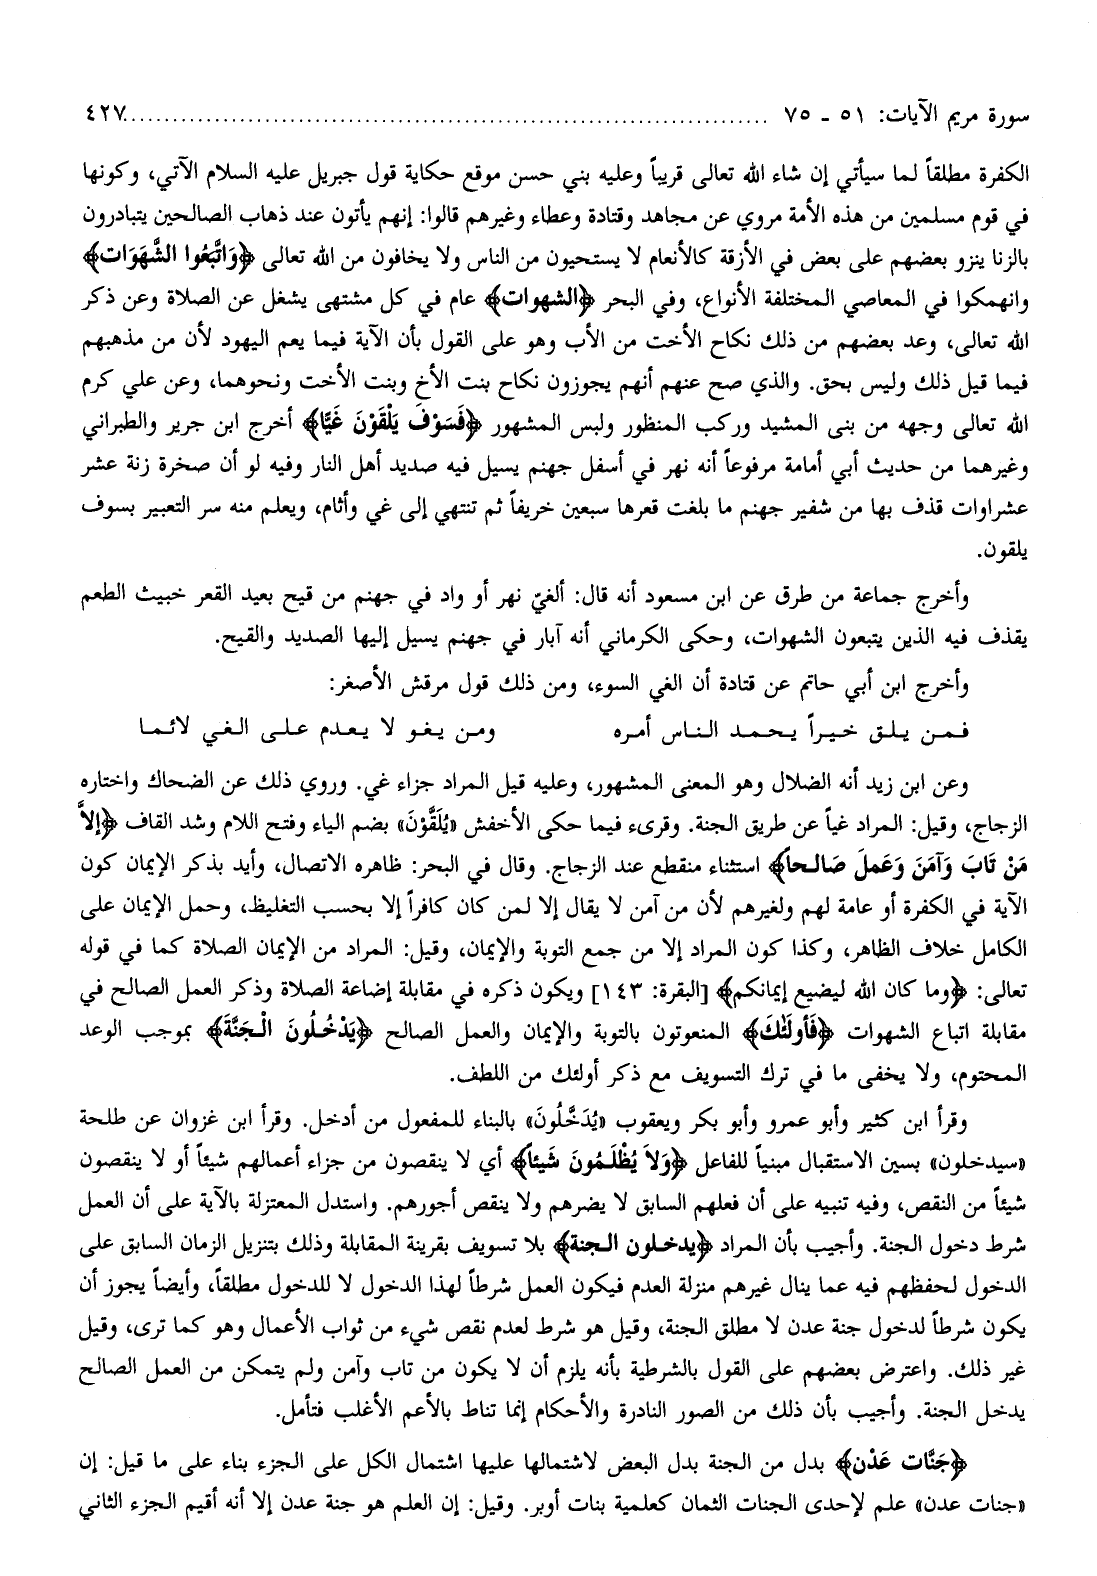 سورة مريم الآيات: ٥١ ـ ٧٥ ........................................................................ ٤٢٧
الكفرة مطلقاً لما سيأتي إن شاء الله تعالى قريباً وعليه بني حسن موقع حكاية قول جبريل عليه السلام الآتي، وكونها
في قوم مسلمين من هذه الأمة مروي عن مجاهد وقتادة وعطاء وغيرهم قالوا: إنهم يأتون عند ذهاب الصالحين يتبادرون
بالزنا ينزو بعضهم على بعض في الأزقة كالأنعام لا يستحيون من الناس ولا يخافون من الله تعالى ﴿وَاتَّبَعُوا الشَّهَوَات﴾
وانهمكوا في المعاصي المختلفة الأنواع، وفي البحر ﴿الشهوات﴾ عام في كل مشتهى يشغل عن الصلاة وعن ذكر
الله تعالى، وعد بعضهم من ذلك نكاح الأخت من الأب وهو على القول بأن الآية فيما يعم اليهود لأن من مذهبهم
فيما قيل ذلك وليس بحق. والذي صح عنهم أنهم يجوزون نكاح بنت الأخ وبنت الأخت ونحوهما، وعن علي كرم
الله تعالى وجهه من بنى المشيد وركب المنظور ولبس المشهور ﴿فَسَوْفَ يَلْقَوْنَ غَيًّا﴾ أخرج ابن جرير والطبراني
وغيرهما من حديث أبي أمامة مرفوعاً أنه نهر في أسفل جهنم يسيل فيه صديد أهل النار وفيه لو أن صخرة زنة عشر
عشراوات قذف بها من شفير جهنم ما بلغت قعرها سبعين خريفاً ثم تنتهي إلى غي وأثام، ويعلم منه سر التعبير بسوف
يلقون.
وأخرج جماعة من طرق عن ابن مسعود أنه قال: ألغيّ نهر أو واد في جهنم من قيح بعيد القعر خبيث الطعم
يقذف فيه الذين يتبعون الشهوات، وحكى الكرماني أنه آبار في جهنم يسيل إليها الصديد والقيح.
وأخرج ابن أبي حاتم عن قتادة أن الغي السوء، ومن ذلك قول مرقش الأصغر:
فمن يلق خيراً يحمد الناس أمره ومن يغو لا يعدم على الغي لائما
وعن ابن زيد أنه الضلال وهو المعنى المشهور، وعليه قيل المراد جزاء غي. وروي ذلك عن الضحاك واختاره
الزجاج، وقيل: المراد غياً عن طريق الجنة. وقرىء فيما حكى الأخفش «يُلَقَّوْنَ» بضم الياء وفتح اللام وشد القاف ﴿إلاَّ
مَنْ تَابَ وَآمَنَ وَعَملَ صَالحاً﴾ استثناء منقطع عند الزجاج. وقال في البحر: ظاهره الاتصال، وأيد بذكر الإيمان كون
الآية في الكفرة أو عامة لهم ولغيرهم لأن من آمن لا يقال إلا لمن كان كافراً إلا بحسب التغليظ، وحمل الإيمان على
الكامل خلاف الظاهر، وكذا كون المراد إلا من جمع التوبة والإيمان، وقيل: المراد من الإيمان الصلاة كما في قوله
تعالى: ﴿وما كان الله ليضيع إيمانكم﴾ [البقرة: ١٤٣] ويكون ذكره في مقابلة إضاعة الصلاة وذكر العمل الصالح في
مقابلة اتباع الشهوات ﴿فَأُولَئكَ﴾ المنعوتون بالتوبة والإيمان والعمل الصالح ﴿يَدْخُلُونَ الْجَنَّةَ﴾ بموجب الوعد
المحتوم، ولا يخفى ما في ترك التسويف مع ذكر أولئك من اللطف.
وقرأ ابن كثير وأبو عمرو وأبو بكر ويعقوب «يُدَخَّلُونَ» بالبناء للمفعول من أدخل. وقرأ ابن غزوان عن طلحة
«سيدخلون» بسين الاستقبال مبنياً للفاعل ﴿وَلاَ يُظْلَمُونَ شَيئاً﴾ أي لا ينقصون من جزاء أعمالهم شيئاً أو لا ينقصون
شيئاً من النقص، وفيه تنبيه على أن فعلهم السابق لا يضرهم ولا ينقص أجورهم. واستدل المعتزلة بالآية على أن العمل
شرط دخول الجنة. وأجيب بأن المراد ﴿يدخلون الجنة﴾ بلا تسويف بقرينة المقابلة وذلك بتنزيل الزمان السابق على
الدخول لحفظهم فيه عما ينال غيرهم منزلة العدم فيكون العمل شرطاً لهذا الدخول لا للدخول مطلقاً، وأيضاً يجوز أن
يكون شرطاً لدخول جنة عدن لا مطلق الجنة، وقيل هو شرط لعدم نقص شيء من ثواب الأعمال وهو كما ترى، وقيل
غير ذلك. واعترض بعضهم على القول بالشرطية بأنه يلزم أن لا يكون من تاب وآمن ولم يتمكن من العمل الصالح
يدخل الجنة. وأجيب بأن ذلك من الصور النادرة والأحكام إنما تناط بالأعم الأغلب فتأمل.
﴿جَنَّات عَدْن﴾ بدل من الجنة بدل البعض لاشتمالها عليها اشتمال الكل على الجزء بناء على ما قيل: إن
«جنات عدن» علم لإحدى الجنات الثمان كعلمية بنات أوبر. وقيل: إن العلم هو جنة عدن إلا أنه أقيم الجزء الثاني